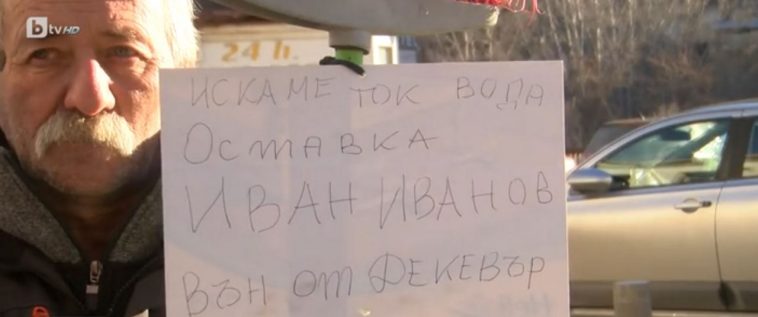 btv HD
24 h.
ИСКАМЕ ТОК ВОДА
ОСТАВКА
ИВАН ИВАНОВ
ВЪН ОТ ДЕКЕВЪР